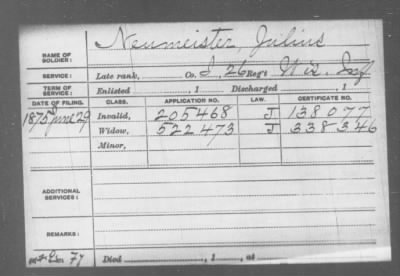 NAME OF SOLDIER: Neumeister, Julius
SERVICE: Late rank, Co. I, 26 Reg't Wis. Inf
TERM OF SERVICE: Enlisted , 1 Discharged , 1
DATE OF FILING. CLASS. APPLICATION NO. LAW. CERTIFICATE NO.
1875 June 29 Invalid, 205468 J 138077
Widow, 522473 J 338346
Minor,
ADDITIONAL SERVICES:
REMARKS:
77 Died , 1 , at